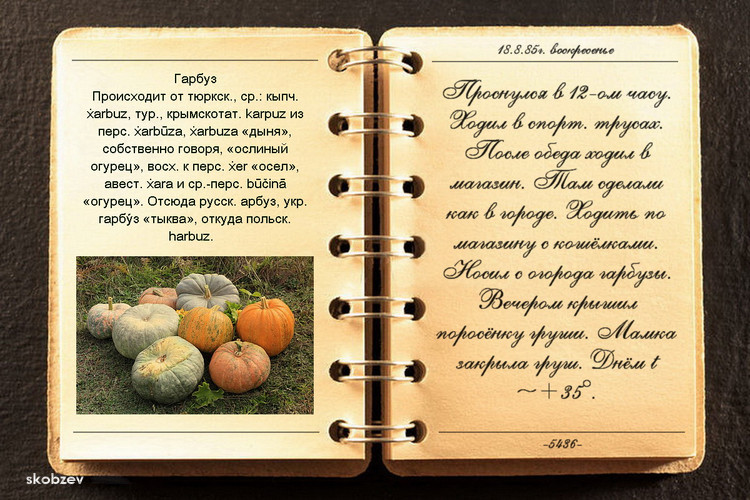 Гарбуз
Происходит от тюркск., ср.: кыпч.
ẋarbuz, тур., крымскотат. karpuz из
перс. ẋarbūza, ẋarbuza «дыня»,
собственно говоря, «ослиный
огурец», восх. к перс. ẋer «осел»,
авест. ẋara и ср.-перс. būčinā
«огурец». Отсюда русск. арбуз, укр.
гарбу́з «тыква», откуда польск.
harbuz.
18.8.85г. воскресенье
Проснулся в 12-ом часу.
Ходил в спорт. трусах.
После обеда ходил в
магазин. Там сделали
как в городе. Ходить по
магазину с кошёлками.
Носил с огорода гарбузы.
Вечером крышил
поросёнку груши. Мамка
закрыла груш. Днём t
~+35°.
-5436-
skobzev